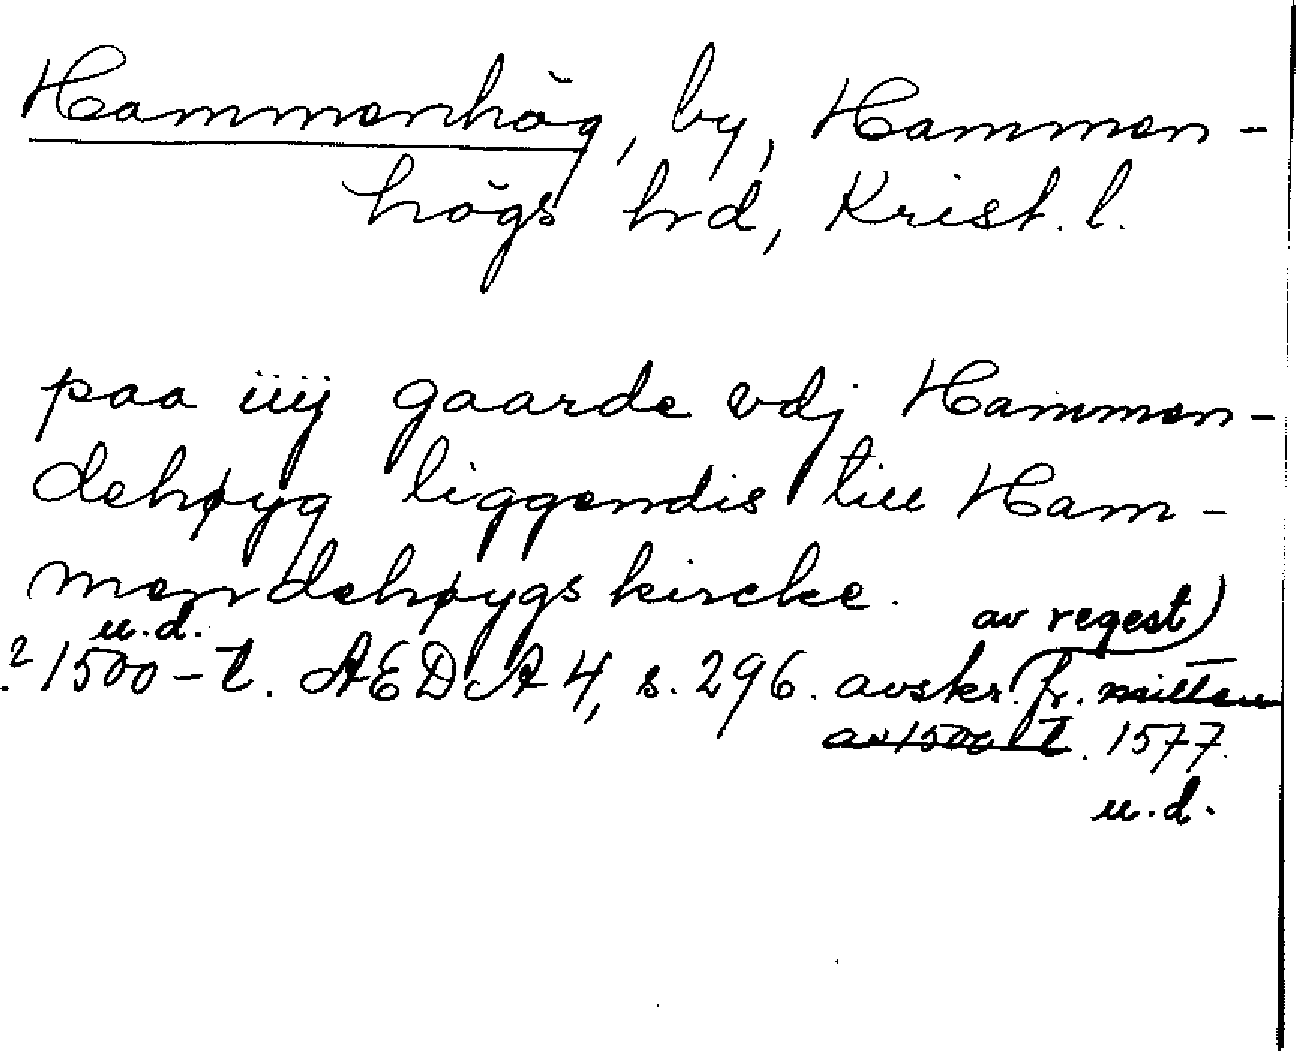 Hammenhög, by, Hammen-
högs hrd, Krist. l.
paa iiij gaarde vdj Hammen-
dehøyg liggendis till Ham-
mendehøygs kircke.
av regest)
u.d.
? 1500-t. AEDA 4, s. 296. avskr. fr. mitten
av 1500-t. 1577.
u.d.